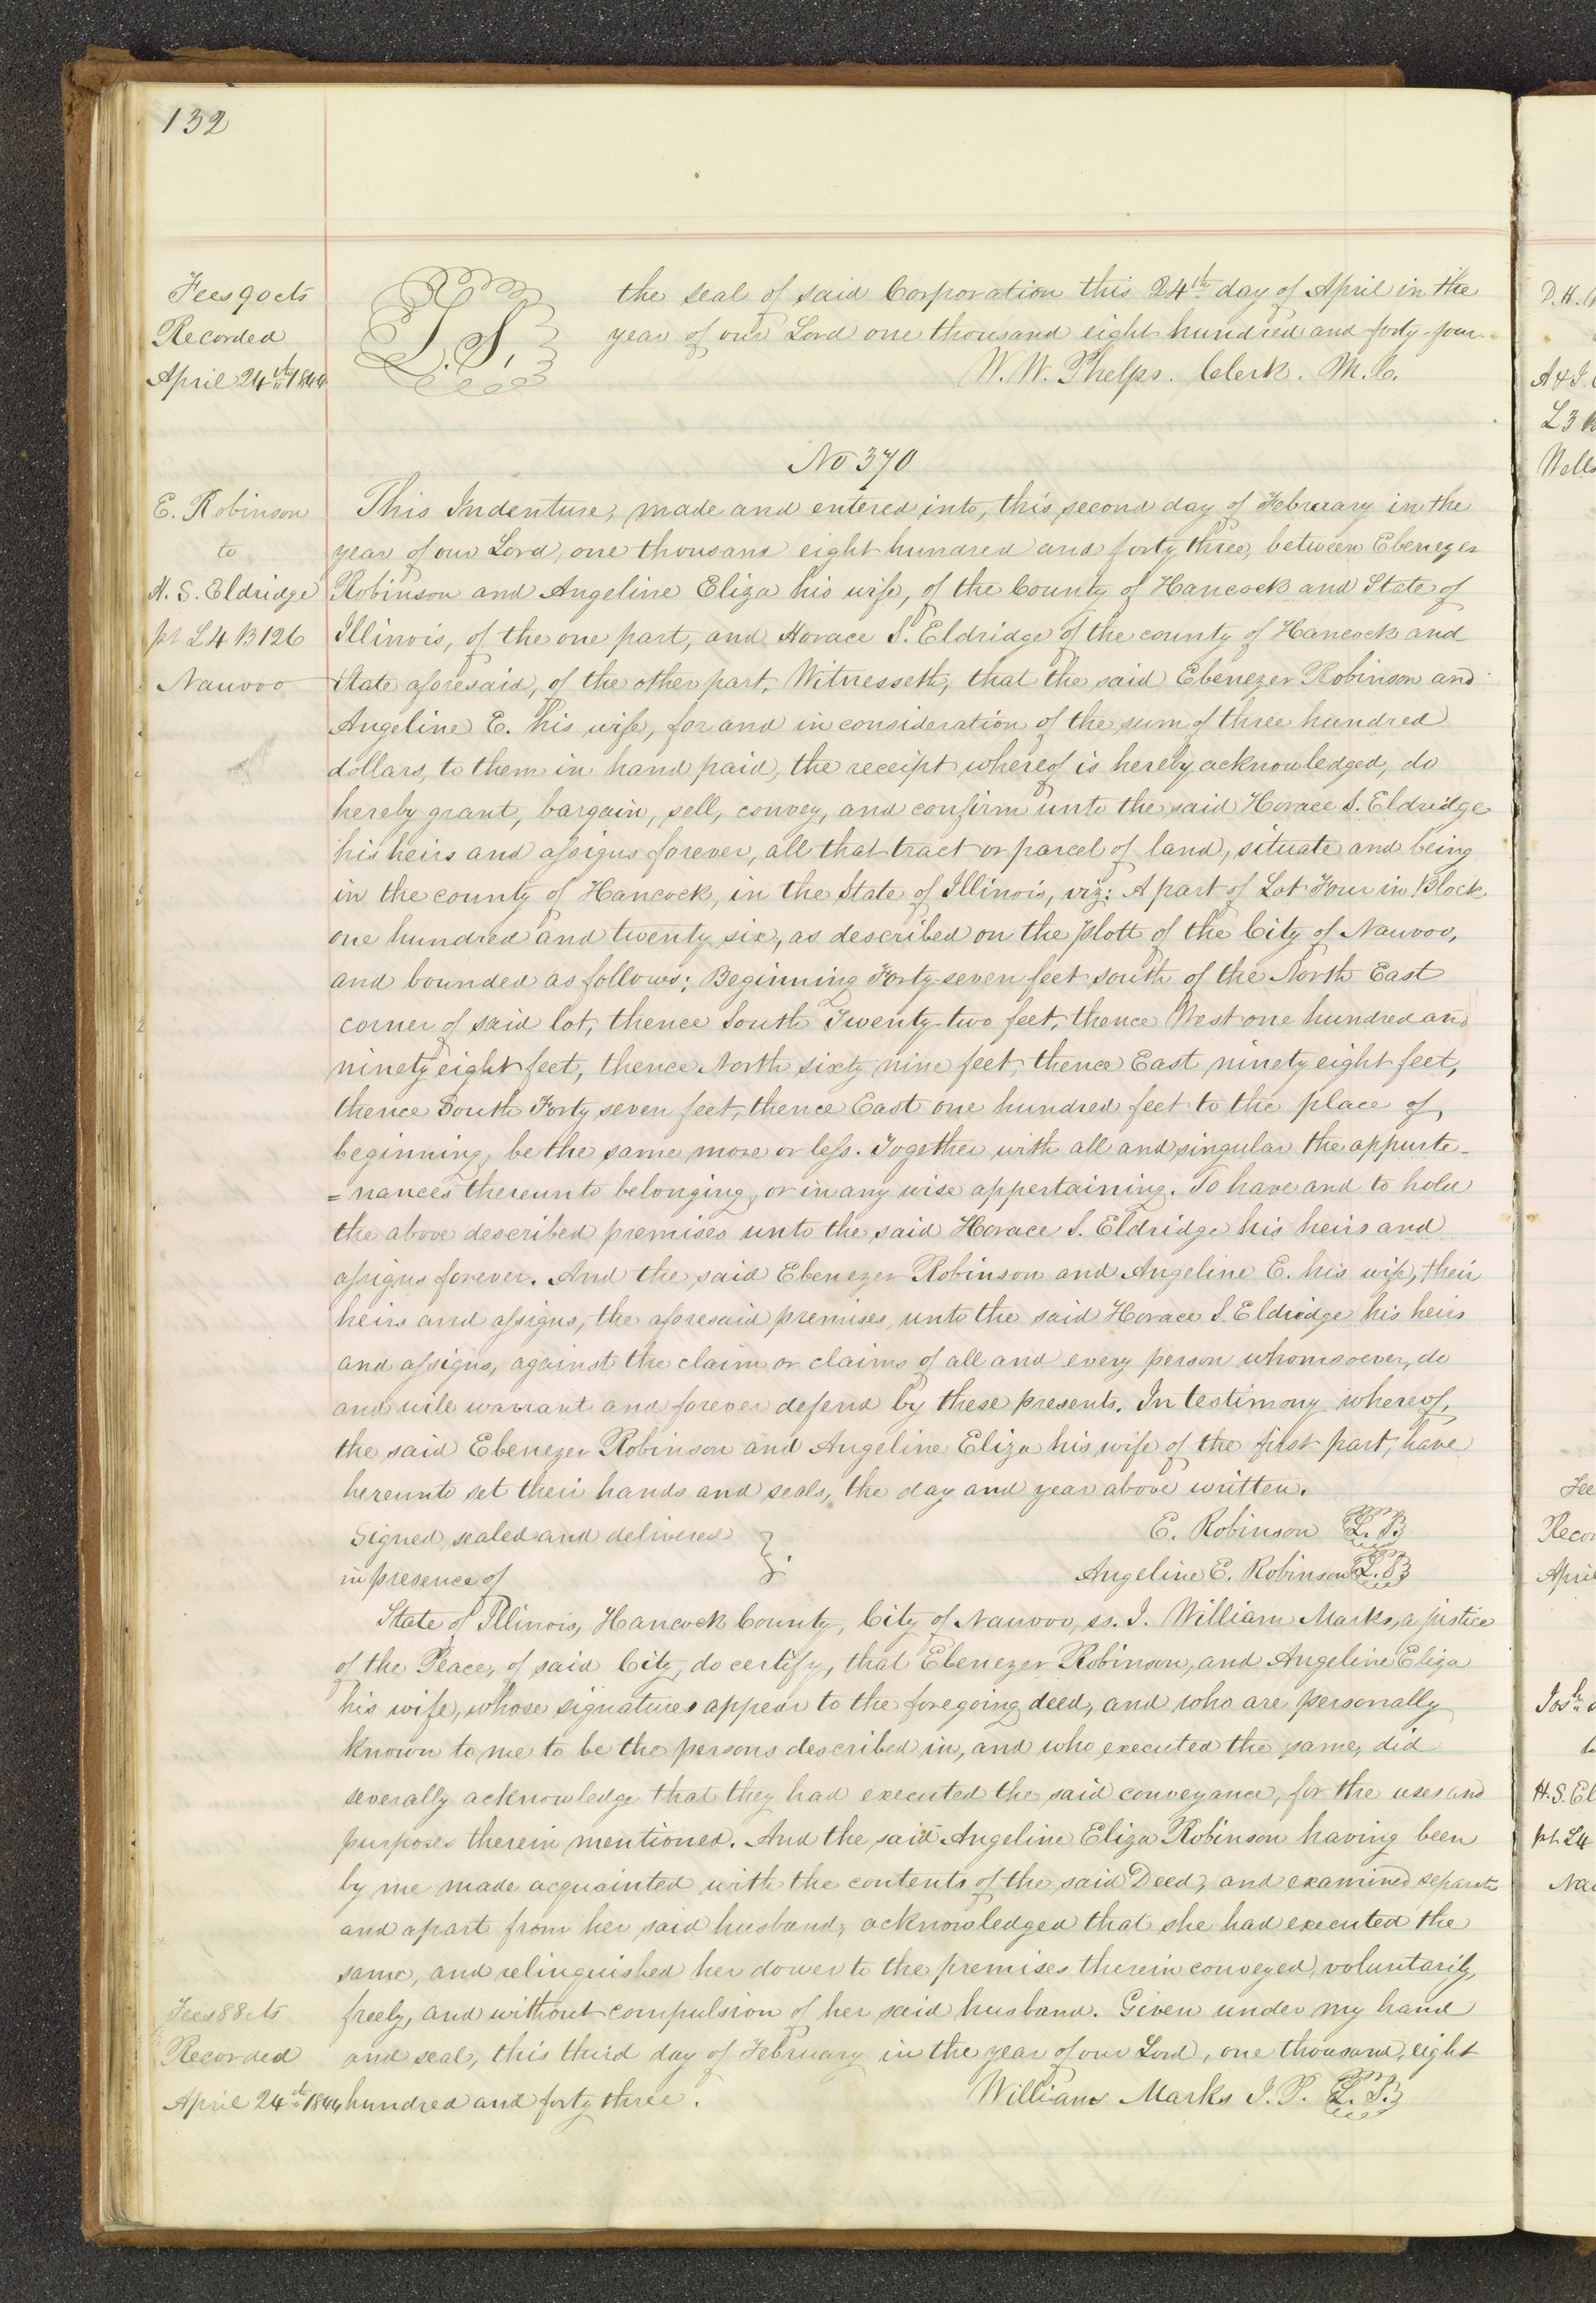 132
Fees 90 cts
Recorded
April 24th 1844
L. S.
the seal of said Corporation this 24th day of April in the
year of our Lord one thousand eight hundred and forty-four.
W. W. Phelps. Clerk. M. C.
No 370
E. Robinson
to
H. S. Eldridge
pt L4 B126
Nauvoo
This Indenture, made and entered into, this second day of February in the
year of our Lord, one thousand eight hundred and forty three, between Ebenezer
Robinson and Angeline Eliza his wife, of the County of Hancock and State of
Illinois, of the one part, and Horace S. Eldridge of the county of Hancock and
State aforesaid, of the other part, Witnesseth, that the said Ebenezer Robinson and
Angeline E. his wife, for and in consideration of the sum of three hundred
dollars, to them in hand paid, the receipt whereof is hereby acknowledged, do
hereby grant, bargain, sell, convey, and confirm unto the said Horace S. Eldridge
his heirs and assigns forever, all that tract or parcel of land, situate and being
in the county of Hancock, in the State of Illinois, viz: A part of Lot Four in Block
one hundred and twenty six, as described on the plott of the City of Nauvoo,
and bounded as follows; Beginning Forty-seven feet south of the North East
corner of said lot, thence South Twenty-two feet, thence West one hundred and
ninety eight feet, thence North sixty nine feet, thence East ninety eight feet,
thence South Forty seven feet, thence East one hundred feet to the place of
beginning, be the same more or less. Together with all and singular the appurte-
=nances thereunto belonging, or in any wise appertaining. To have and to hold
the above described premises unto the said Horace S. Eldridge his heirs and
assigns forever. And the said Ebenezer Robinson and Angeline E. his wife, their
heirs and assigns, the aforesaid premises, unto the said Horace S. Eldridge his heirs
and assigns, against the claim or claims of all and every person whomsoever, do
and will warrant and forever defend by these presents. In testimony whereof,
the said Ebenezer Robinson and Angeline Eliza his wife of the first part, have
hereunto set their hands and seals, the day and year above written.
Signed, sealed and delivered }
in presence of
E. Robinson L. S
Angeline E. Robinson L. S
State of Illinois, Hancock County, City of Nauvoo, ss. I. William Marks, a justice
of the Peace, of said City, do certify, that Ebenezer Robinson, and Angeline Eliza
his wife, whose signatures appear to the foregoing deed, and who are personally
known to me to be the persons described in, and who executed the same, did
severally acknowledge that they had executed the said conveyance, for the uses and
purposes therein mentioned. And the said Angeline Eliza Robinson having been
by me made acquainted with the contents of the said Deed, and examined separate
and apart from her said husband, acknowledged that she had executed the
same, and relinquished her dower to the premises therein conveyed, voluntarily,
freely, and without compulsion of her said husband. Given under my hand
and seal, this third day of February in the year of our Lord, one thousand, eight
hundred and forty three.
William Marks J. P. L. S.
Fees 88 cts
Recorded
April 24th 1844
D. H.
A & J.
L3
Wells
Fee
Recor
April
Josh
H. S. El
pt L4
Na